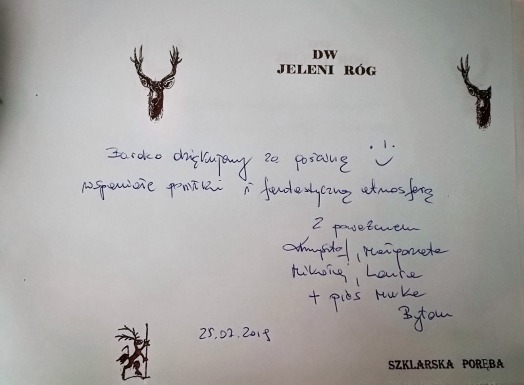 DW
JELENI RÓG
Bardzo dziękujemy za gościnę
wspaniałe posiłki i fantastyczną atmosferę
Z poważaniem
Krzysztof, Małgorzata
Mikołaj, Laura
+ pies
Bytom
25.02.2019
SZKLARSKA PORĘBA